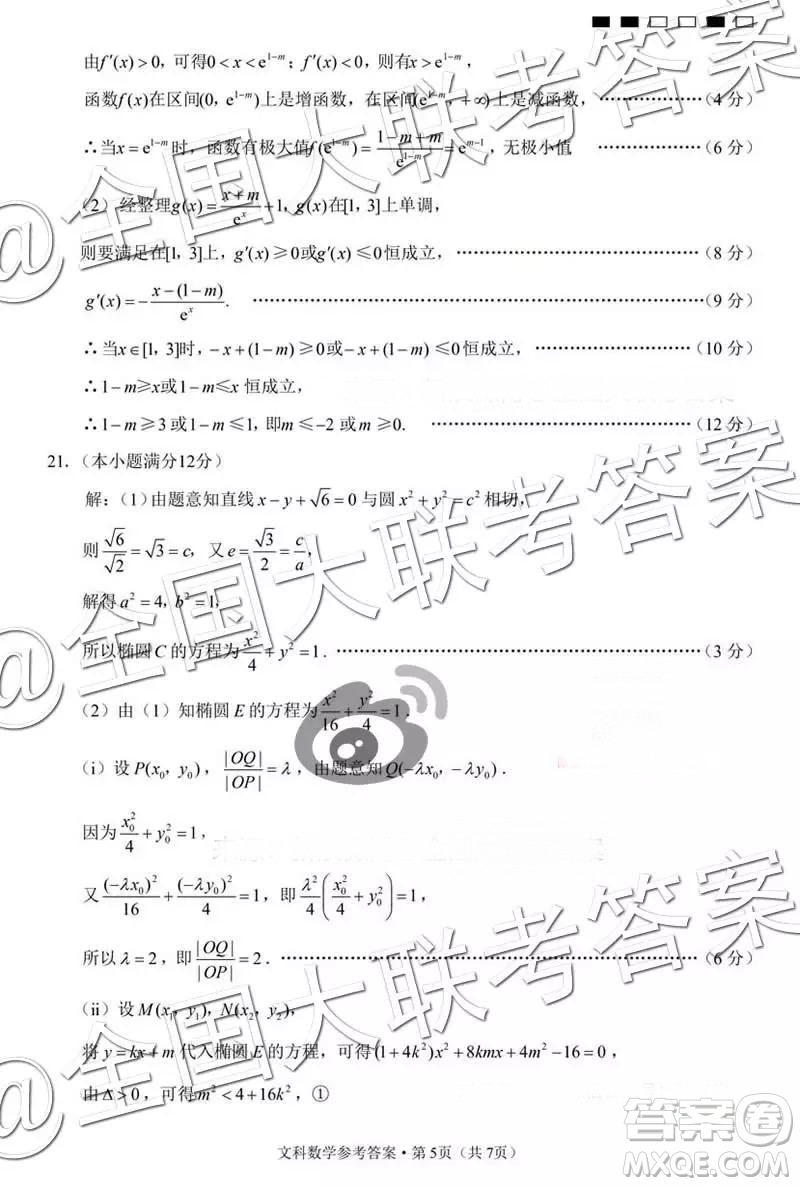 由f′(x)>0，可得0<x<e^{1−m}；f′(x)<0，则有x>e^{1−m}，
函数f(x)在区间(0，e^{1−m})上是增函数，在区间(e^{1−m}，+∞)上是减函数，……………（4 分）
∴当x=e^{1−m}时，函数有极大值f(e^{1−m})=\frac{1−m+m}{e^{1−m}}=e^{m−1}，无极小值 ……………（6 分）
（2）经整理g(x)=\frac{x+m}{e^x}+1，g(x)在[1，3]上单调，
则要满足在[1，3]上，g′(x)≥0或g′(x)≤0恒成立，……………（8 分）
g′(x)=−\frac{x−(1−m)}{e^x}. ……………（9 分）
∴当x∈[1，3]时，−x+(1−m)≥0或−x+(1−m)≤0恒成立，……………（10 分）
∴1−m≥x或1−m≤x 恒成立，
∴1−m≥3或1−m≤1，即m≤−2 或m≥0. ……………（12 分）
21．（本小题满分12分）
解：（1）由题意知直线 x−y+√6=0 与圆 x²+y²=c² 相切，
则\frac{√6}{√2}=√3=c，又 e=\frac{√3}{2}=\frac{c}{a}，
解得 a²=4，b²=1，
所以椭圆 C 的方程为\frac{x²}{4}+y²=1．……………（3 分）
（2）由（1）知椭圆 E 的方程为\frac{x²}{16}+\frac{y²}{4}=1．
（i）设 P(x₀，y₀)，\frac{|OQ|}{|OP|}=λ，由题意知 Q(−λx₀，−λy₀)．
因为\frac{x₀²}{4}+y₀²=1，
又\frac{(−λx₀)²}{16}+\frac{(−λy₀)²}{4}=1，即\frac{λ²}{4}(\frac{x₀²}{4}+y₀²)=1，
所以 λ=2，即\frac{|OQ|}{|OP|}=2．……………（6 分）
（ii）设 M(x₁，y₁)，N(x₂，y₂)，
将 y=kx+m 代入椭圆 E 的方程，可得(1+4k²)x²+8kmx+4m²−16=0，
由Δ>0，可得m²<4+16k²，①
文科数学参考答案·第 5页（共 7页）
@全国大联考答案
@全国大联考答案
答案卷
MXQE.COM